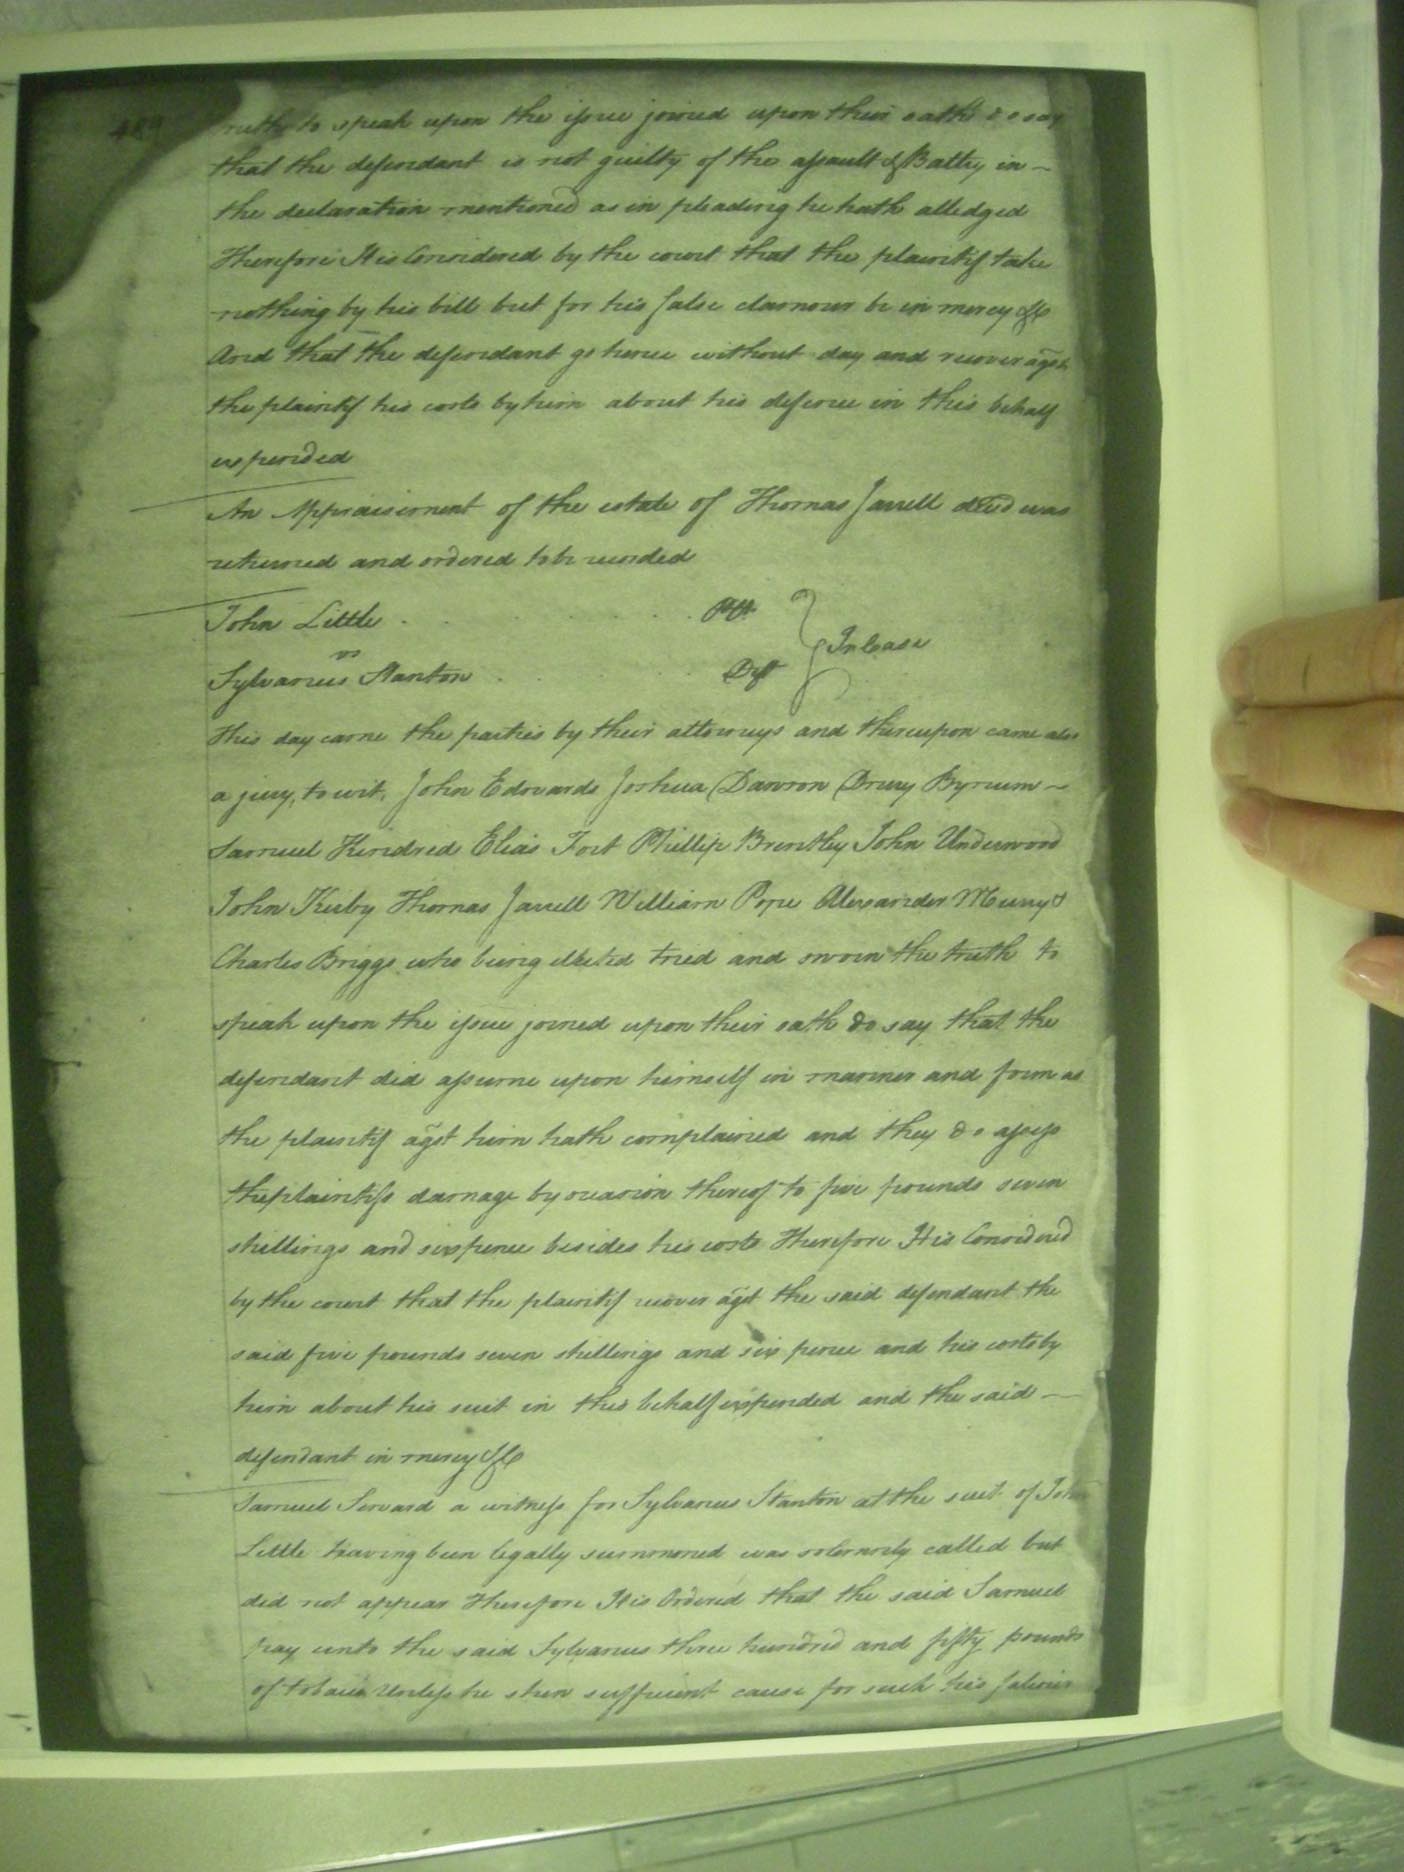 489
truth to speak upon the issue joined upon their oath do say
that the defendant is not guilty of the assault & Battry in
the declaration mentioned as in pleading he hath alledged
Therefore It is Considered by the court that the plaintif take
nothing by his bill but for his false clamour be in mercy &c
And that the defendant go hence without day and recover agst
the plaintif his costs by him about his defence in this behalf
expended
An Appraisement of the estate of Thomas Jarrell decd was
returned and ordered to be recorded
John Little Plt
vs In Case
Sylvanus Stanton Dft
This day came the parties by their attorneys and thereupon came also
a jury, to wit, John Edwards Joshua Dawson Drury Byrum
Samuel Kindred Elias Fort Phillip Brantley John Underwood
John Kirby Thomas Jarrell William Pope Alexander Murry &
Charles Briggs who being elected tried and sworn the truth to
speak upon the issue joined upon their oath do say that the
defendant did assume upon himself in manner and form as
the plaintif agst him hath complained and they do assess
the plaintifs damage by occasion thereof to five pounds seven
shillings and sixpence besides his costs Therefore It is Considered
by the court that the plaintif recover agst the said defendant the
said five pounds seven shillings and six pence and his costs by
him about his suit in this behalf expended and the said
defendant in mercy &c
Samuel Seward a witness for Sylvanus Stanton at the suit of John
Little having been legally summoned was solemnly called but
did not appear Therefore It is Ordered that the said Samuel
pay unto the said Sylvanus three hundred and fifty pounds
of tobacco Unless he shew sufficient cause for such his failure